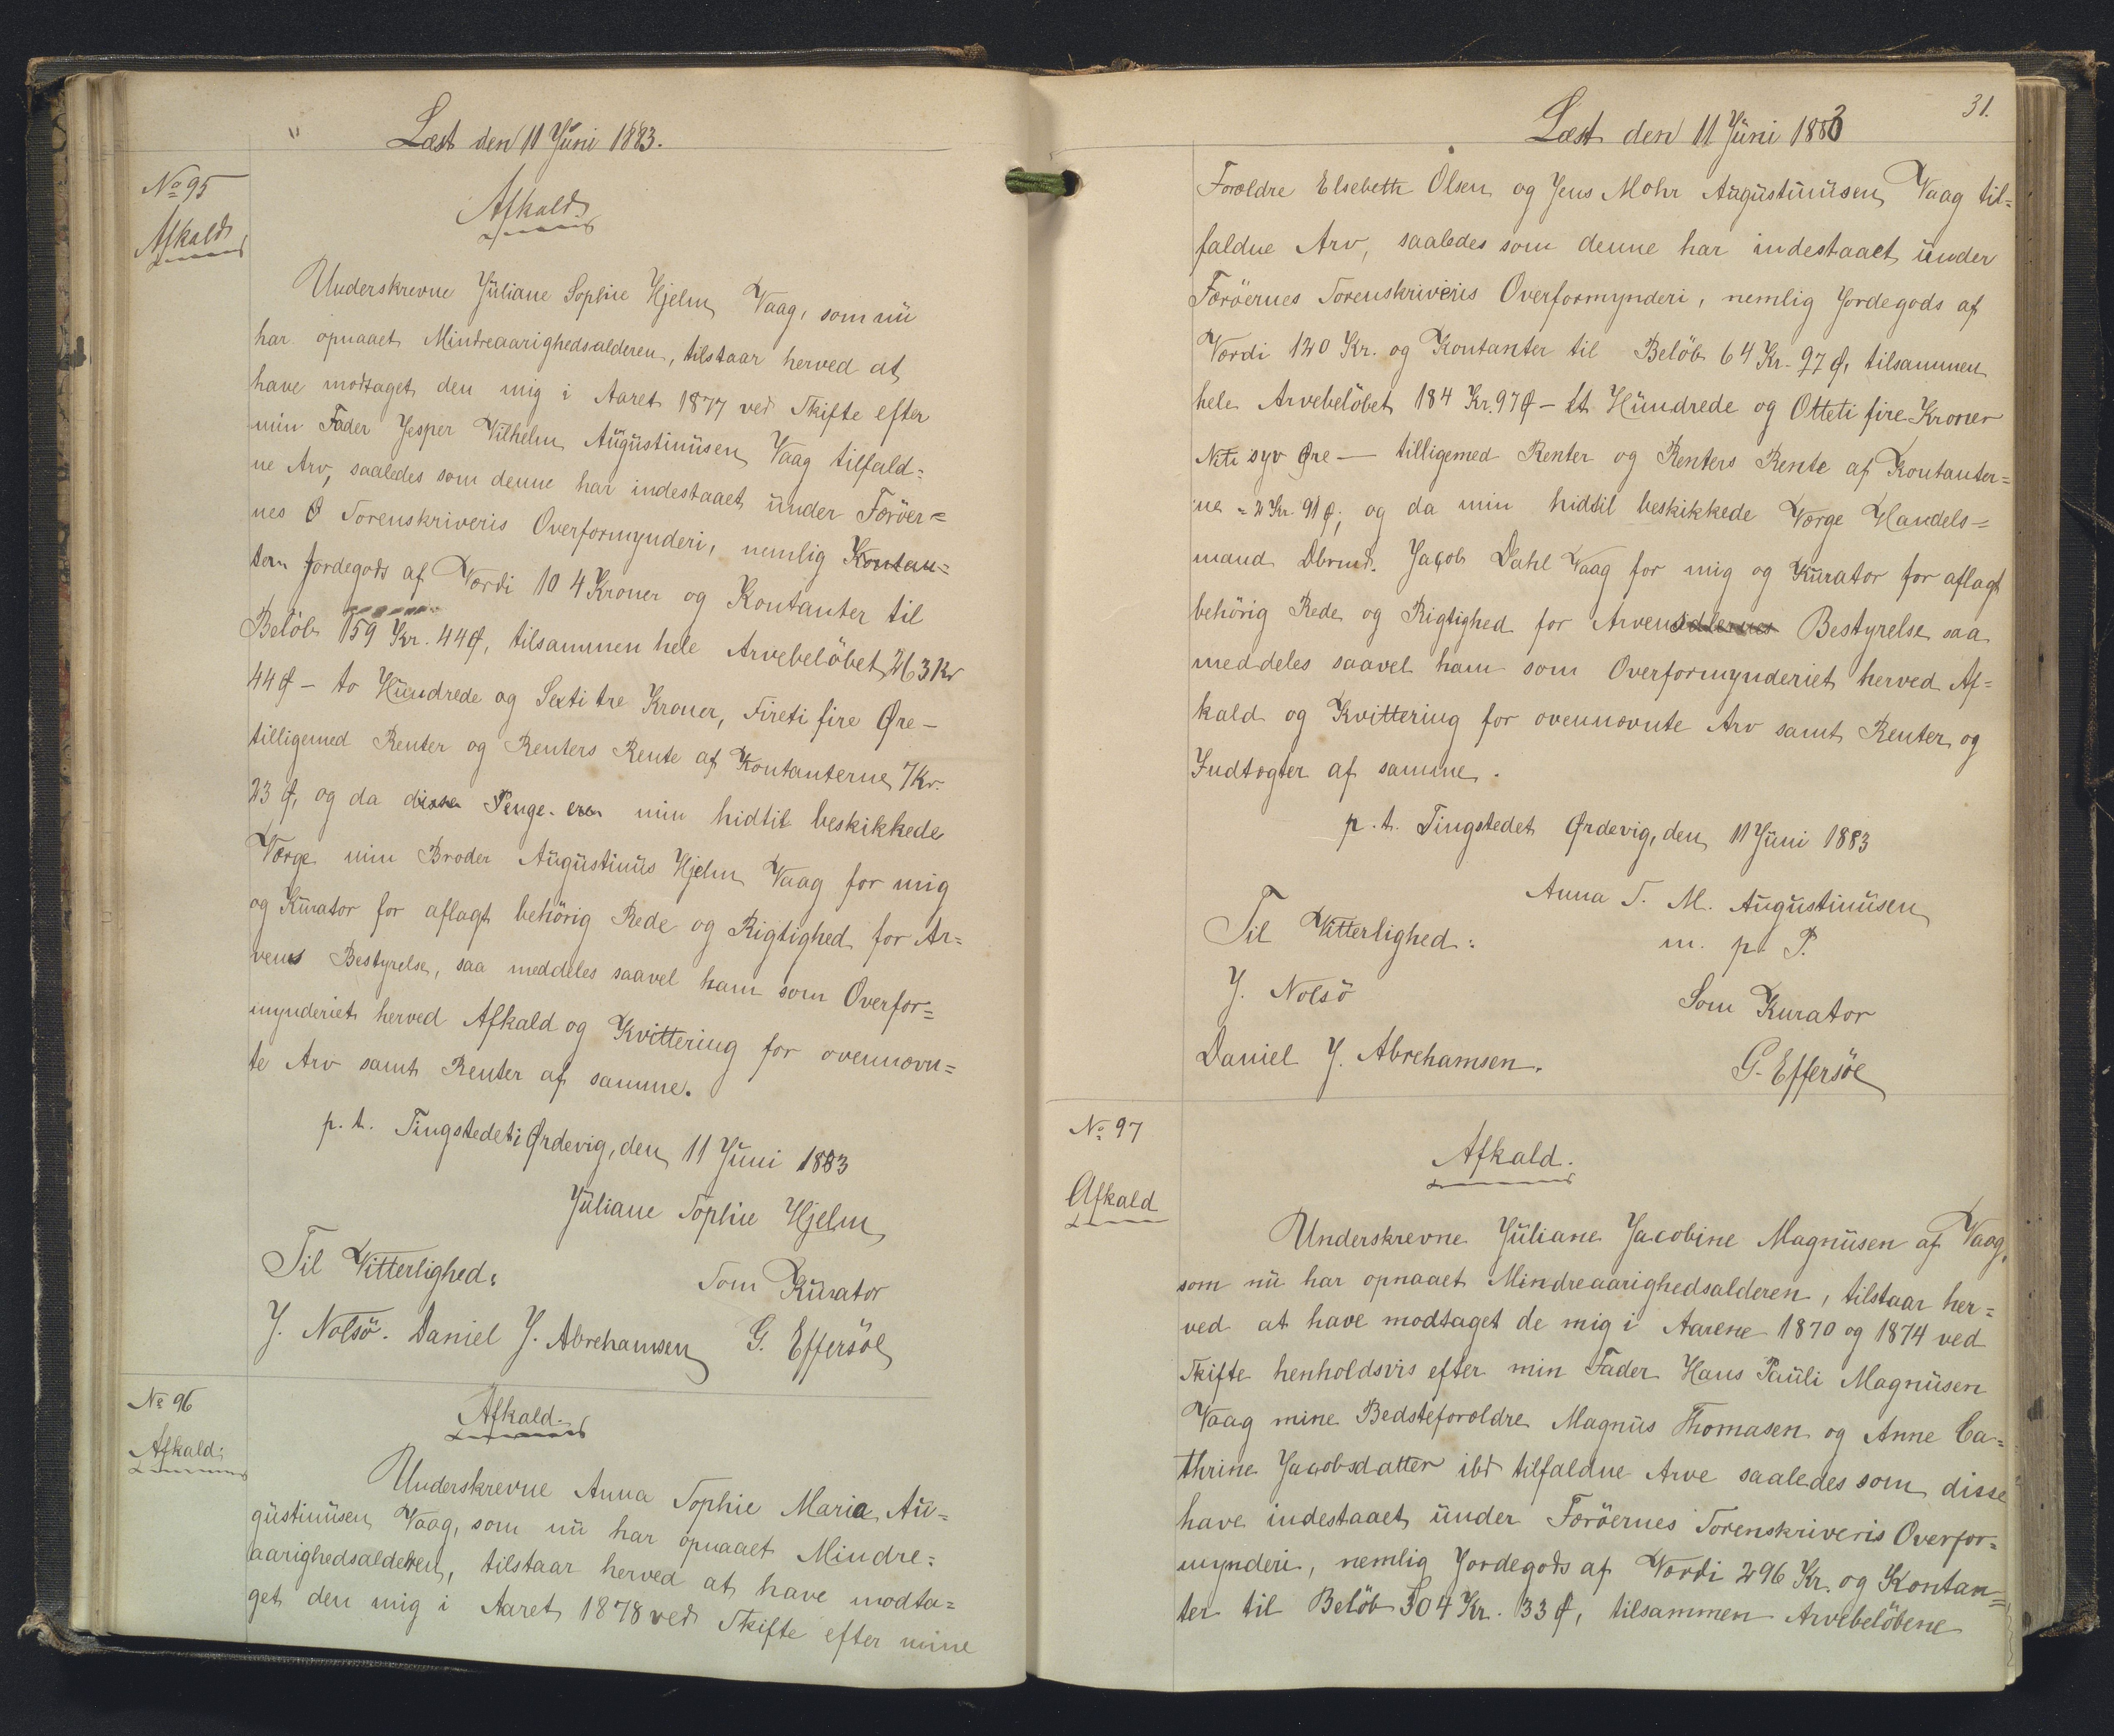 Læst den 11 Juni 1883.
No 95
Afkald
Afkald
Underskrevne Juliane Sophie Hjelm Vaag, som nu
har opnaaet Mindreaarighedsalderen, tilstaar herved at
have modtaget den mig i Aaret 1877 ved Skifte efter
min Fader Jesper Vilhelm Augustinusen Vaag tilfald=
ne Arv, saaledes som denne har indestaaet under Færöer=
nes Sorenskriveris Overformynderi, nemlig Kontan=
ter Jordegods af Værdi 104 Kroner og Kontanter til
Belöb 159 Kr. 44 Ø, tilsammen hele Arvebelöbet 263 Kr
44 Ø - to Hundrede og Sexti tre Kroner, Fireti fire Øre -
tilligemed Renter og Renters Rente af Kontanterne 7 Kr.
23 Ø, og da disse Penge ere min hidtil beskikkede
Værge min Broder Augustinus Hjelm Vaag for mig
og Kurator for aflagt behörig Rede og Rigtighed for Ar=
vens Bestyrelse, saa meddeles saavel ham som Overfor=
mynderiet herved Afkald og Kvittering for ovennævn=
te Arv samt Renter af samme.
p. t. Tingstedet i Ørdevig, den 11 Juni 1883
Juliane Sophie Hjelm
Til Vitterlighed:
Som Kurator
J. Nolsö. Daniel J. Abrehamsen G. Effersöe
No 96
Afkald.
Afkald.
Underskrevne Anna Sophie Maria Au=
gustinusen Vaag, som nu har opnaaet Mindre=
aarighedsalderen, tilstaar herved at have modta=
get den mig i Aaret 1878 ved Skifte efter mine
31.
Læst den 11 Juni 1883
Forældre Elsebeth Olsen og Jens Mohr Augustinusen Vaag til=
faldne Arv, saaledes som denne har indestaaet under
Færöernes Sorenskriveris Overformynderi, nemlig Jordegods af
Værdi 120 Kr. og Kontanter til Belöb 64 Kr. 97 Ø, tilsammen
hele Arvebelöbet 184 Kr. 97 Ø - Et Hundrede og Otteti fire Kroner
Niti syv Øre - tilligemed Renter og Renters Rente af Kontanter=
ne = 2 Kr. 91 Ø; og da min hidtil beskikkede Værge Handels=
mand Dbrmd. Jacob Dahl Vaag for mig og Kurator for aflagt
behörig Rede og Rigtighed for Arvens Bestyrelse, saa
meddeles saavel ham som Overformynderiet herved Af=
kald og Kvittering for ovennævnte Arv samt Renter og
Indtægter af samme.
p. t. Tingstedet Ørdevig, den 11 Juni 1883
Anna S. M. Augustinusen
m. p. P.
Til Vitterlighed:
J. Nolsö
Som Kurator
Daniel J. Abrehamsen.
G. Effersöe
No 97
Afkald
Afkald.
Underskrevne Juliane Jacobine Magnusen af Vaag,
som nu har opnaaet Mindreaarighedsalderen, tilstaar her=
ved at have modtaget de mig i Aarene 1870 og 1874 ved
Skifte henholdsvis efter min Fader Hans Pauli Magnusen
Vaag mine Bedsteforældre Magnus Thomasen og Anne Ca=
thrine Jacobsdatter ibd tilfaldne Arve saaledes som disse
have indestaaet under Færöernes Sorenskriveris Overfor=
mynderi, nemlig Jordegods af Værdi 296 Kr. og Kontan=
ter til Belöb 304 Kr. 33 Ø, tilsammen Arvebelöbene